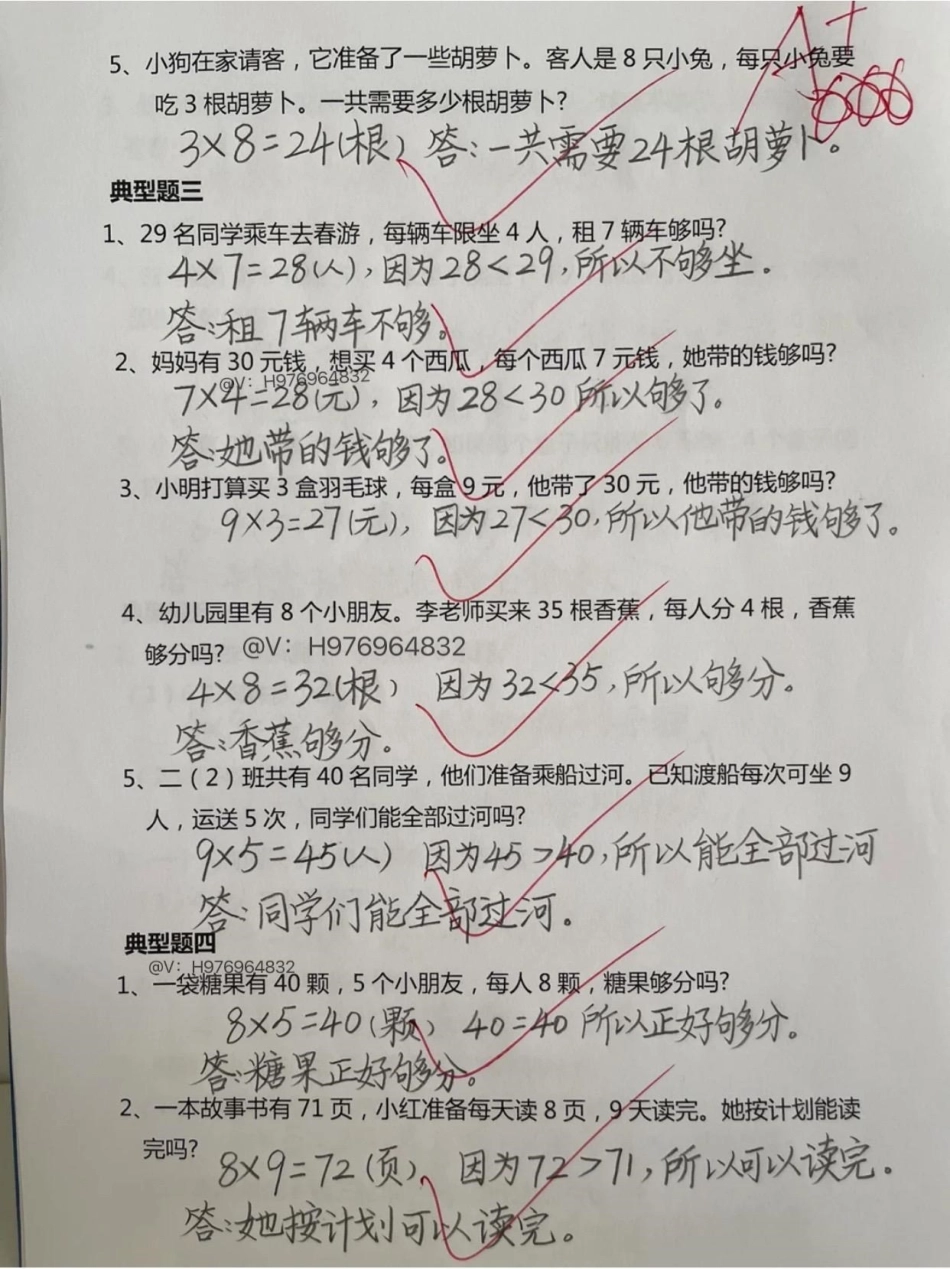 A+
666
5、小狗在家请客，它准备了一些胡萝卜。客人是 8 只小兔，每只小兔要
吃 3 根胡萝卜。一共需要多少根胡萝卜?
3×8=24(根) 答:一共需要24根胡萝卜。
典型题三
1、29 名同学乘车去春游，每辆车限坐 4 人，租 7 辆车够吗?
4×7=28(人),因为28<29,所以不够坐。
答:租7辆车不够。
2、妈妈有 30 元钱，想买 4 个西瓜，每个西瓜 7 元钱，她带的钱够吗?
@V：H976964832
7×4=28(元),因为28<30所以够了。
答:她带的钱够了。
3、小明打算买 3 盒羽毛球，每盒 9 元，他带了 30 元，他带的钱够吗?
9×3=27(元),因为27<30,所以他带的钱够了。
4、幼儿园里有 8 个小朋友。李老师买来 35 根香蕉，每人分 4 根，香蕉
够分吗? @V：H976964832
4×8=32(根) 因为32<35,所以够分。
答:香蕉够分。
5、二（2）班共有 40 名同学，他们准备乘船过河。已知渡船每次可坐 9
人，运送 5 次，同学们能全部过河吗?
9×5=45(人) 因为45>40,所以能全部过河
答:同学们能全部过河。
典型题四
@V：H976964832
1、一袋糖果有 40 颗，5 个小朋友，每人 8 颗，糖果够分吗?
8×5=40(颗) 40=40 所以正好够分。
答:糖果正好够分。
2、一本故事书有 71 页，小红准备每天读 8 页，9 天读完。她按计划能读
完吗?
8×9=72(页), 因为72>71,所以可以读完。
答:她按计划可以读完。